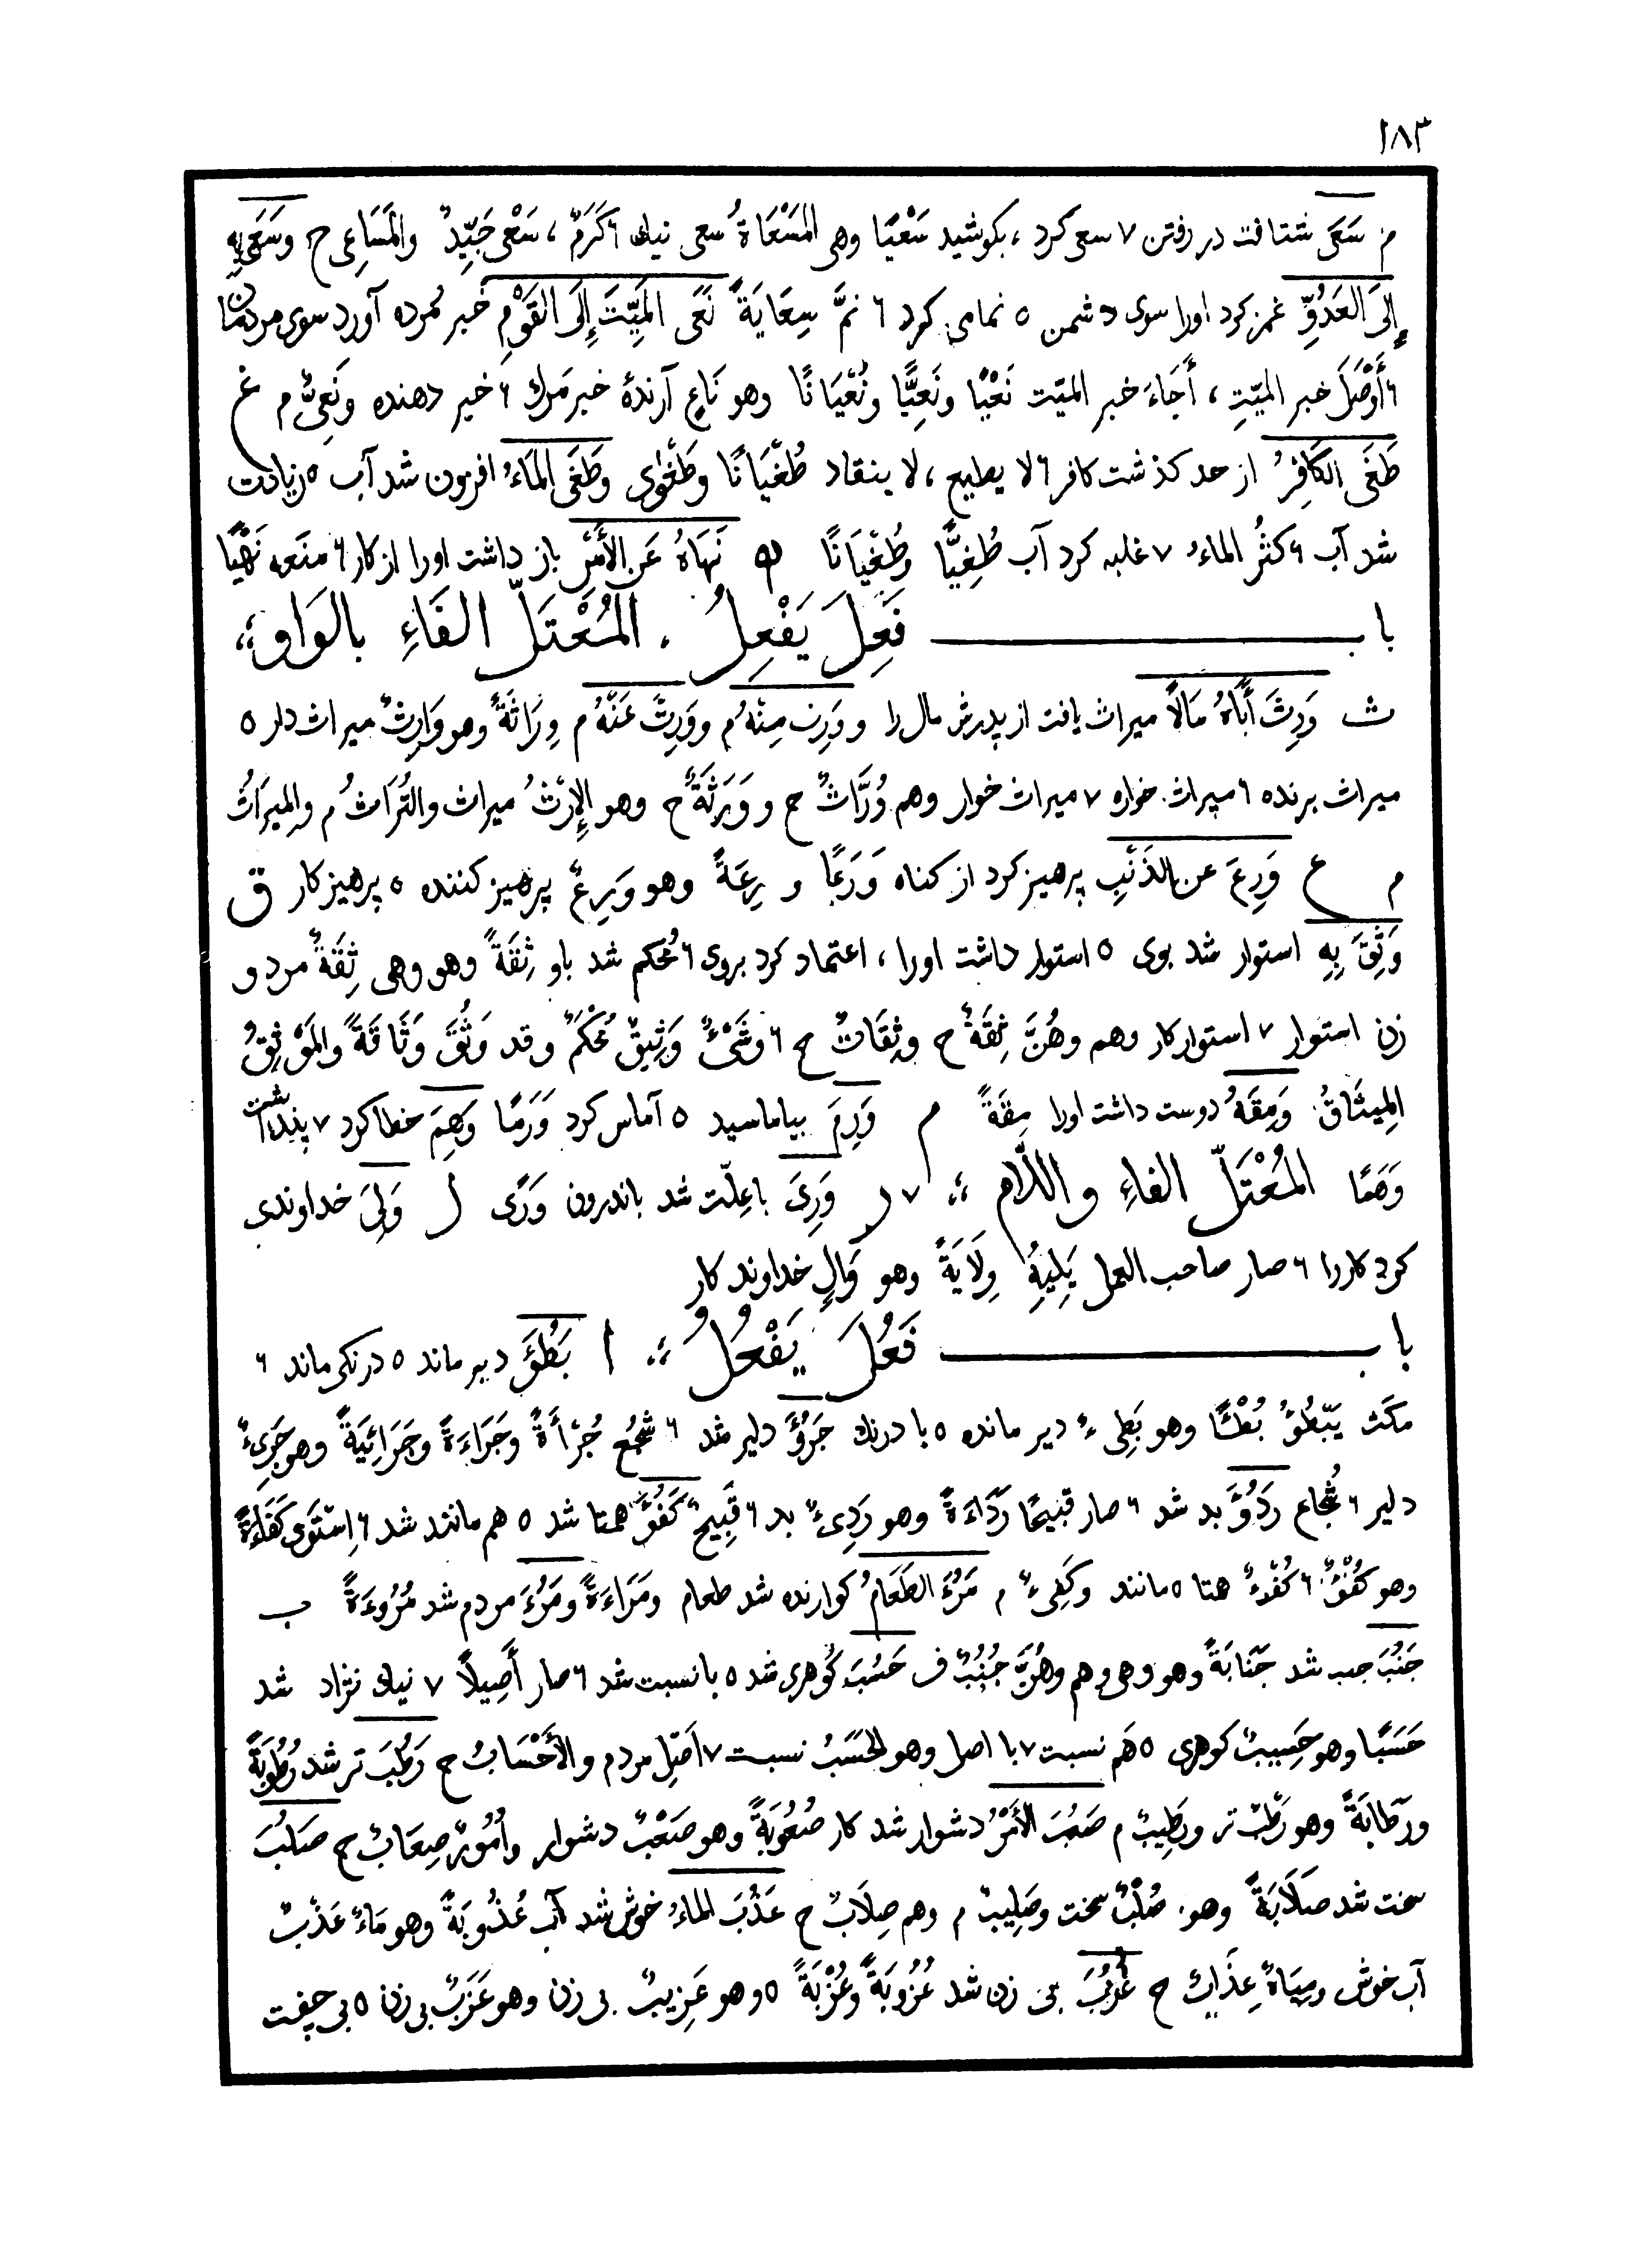 ١٨٣
م سَعَى شتافت در رفتن ٧ سعی کرد ، بکوشید سَعْيًا وهی المَسْعَاةُ سعی نيك ٦ کَرَمٌ ، سَعْی جَيِّدٌ والمَسَاعِی ح وسَعَی بِهِ
إِلَی العَدُوِّ غمز کرد اورا سوی دشمن ٥ نمامی کرد ٦ نَمَّ سِعَايَةً نَعَی المَيِّتَ إِلَی القَوْمِ خبر مُرده آورد سوی مردمان
٦ أَوْصَلَ خبر الميّتِ ، أَجَاءَ خبر الميّت نَعْيًا ونَعِيًّا ونُعْيَانًا وهو نَاعٍ آرندهٔ خبر مَرك ٦ خبر دهنده ونَعِیٌّ م غ
طَغَی الکَافِرُ از حد کذشت کافر ٦ لا یطیع ، لا ینقاد طُغْيَانًا وطَغْوٰی وطَغَی المَاءُ افزون شد آب ٥ زیادت
شد آب ٦ کثُر الماءُ ٧ غلبه کرد آب طُغِيًّا وطُغْيَانًا ه نَهَاهُ عَنِ الأَمْرِ باز داشت اورا از کار ٦ منَعه نَهْيًا
باب فَعِلَ يَفْعِلُ . المُعْتَلّ الفَاءِ بالوَاو ؛
ث وَرِثَ أَبَاهُ مَالًا میراث یافت از پدرش مال را و وَرِثَ مِنْهُ م ووَرِثَ عَنْهُ م وِرَاثَةً وهو وَارِثٌ میراث دار ٥
میراث برنده ٦ میراث خواره ٧ میراث خوار وهم وُرَّاثٌ ح و وَرَثَةٌ ح وهو الإِرْثُ میراث والتُّرَاثُ م والمِيرَاثُ
م ع وَرِعَ عن الذَنْبِ پرهیز کرد از کناه وَرَعًا و رِعَةً وهو وَرِعٌ پرهیز کننده ٥ پرهیز کار ق
وَثِقَ بِهِ استوار شد بوی ٥ استوار داشت اورا ، اعتماد کرد بروی ٦ مُحکم شد باو ثِقَةً وهو وهی ثِقَةٌ مرد و
زن استوار ٧ استوار کار وهم وهُنَّ ثِقَةٌ ح وثِقَاتٌ ح ٦ وشَیْءٌ وَثِيقٌ مُحْکَمٌ وقد وَثُقَ وَثَاقَةً والمَوْثِقُ
المِيثَاقُ وَمِقَهُ دوست داشت اورا مِقَةً م وَرِمَ بیاماسید ٥ آماس کرد وَرَمًا وَهِمَ خطا کرد ٧ پنداشت
وَهَمًا المُعْتَلّ الفاءِ واللّام ؛ ٧ ر وَرِیَ باعِلّت شد باندرون وَرًی ل وَلِیَ خداوندی
کرد کاررا ٦ صار صاحب العمل يَلِيهِ وِلَايَةً وهو وَالٍ خداوند کار
باب فَعُلَ يَفْعُلُ ؛ أ بَطُؤَ دیر ماند ٥ درنکی ماند ٦
مکَث يَبْطُؤُ بُطْئًا وهو بَطِیءٌ دیر مانده ٥ با درنك جَرُؤَ دلیر شد ٦ شَجُع جُرْأَةً وجَرَاءَةً وجَرَائِيَةً وهو جَرِیءٌ
دلیر ٦ شُجاع رَدُؤَ بد شد ٦ صار قبیحًا رَدَاءَةً وهو رَدِیءٌ بد ٦ قَبِيحٌ کَفُؤَ همتا شد ٥ هم مانند شد ٦ اِسْتَوَی کَفَاءَةً
وهو کُفْؤٌ ٦ کُفْءٌ همتا ٥ مانند وکَفِیءٌ م مَرُءَ الطَعَامُ کوارنده شد طعام ومَرَاءَةً ومَرُءَ مردم شد مُرُوءَةً ب
جَنُبَ جنب شد جَنَابَةً وهو وهی وهم وهُنَّ جُنُبٌ ف حَسُبَ کَوهری شد ٥ بانسبت شد ٦ صار أَصِيلاً ٧ نيك نژاد شد
حَسَبًا وهو حَسِيبٌ کوهری ٥ هَم نسبت ٧ با اصل وهو الحَسَبُ نسبت ٧ اَصْلِ مردم والأَحْسَابُ ح رَطُبَ تر شد رُطُوبَةً
ورَطَابَةً وهو رَطْبٌ تر ورَطِيبٌ م صَعُبَ الأَمْرُ دشوار شد کار صُعُوبَةً وهو صَعْبٌ دشوار وأُمُورٌ صِعَابٌ ح صَلُبَ
سخت شد صَلَابَةً وهو صُلْبٌ سخت وصَلِيبٌ م وهم صِلَابٌ ح عَذُبَ الماءُ خوش شد آب عُذُوبَةً وهو مَاءٌ عَذْبٌ
آب خوش ومِيَاهٌ عِذَابٌ ح عَزُبَ بی زن شد عُزُوبَةً وعُزْبَةً ٥ وهو عَزِيبٌ بی زن وهو عَزَبٌ بی زن ٥ بی جفت